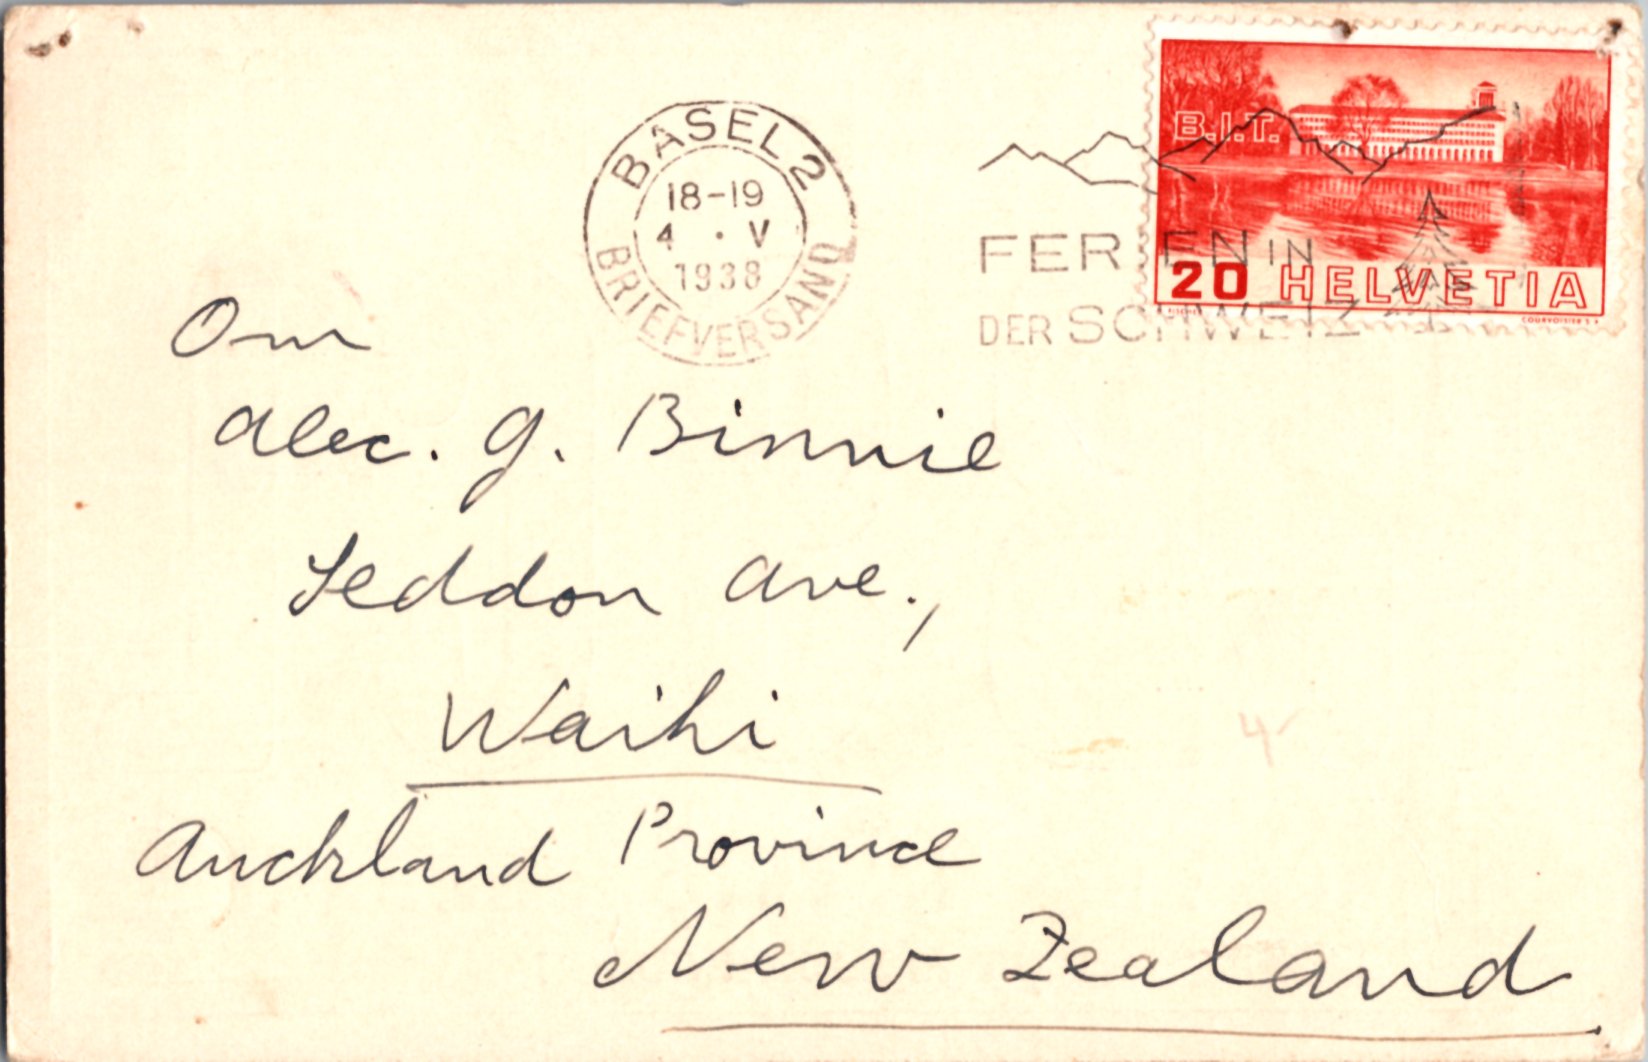 BASEL 2
18-19
4 · V
1938
BRIEFVERSAND
FERIEN IN
DER SCHWEIZ
B.I.T.
20 HELVETIA
COURVOISIER S.A.
Om
Alec. G. Binnie
Seddon Ave.,
Waihi
Auckland Province
New Zealand